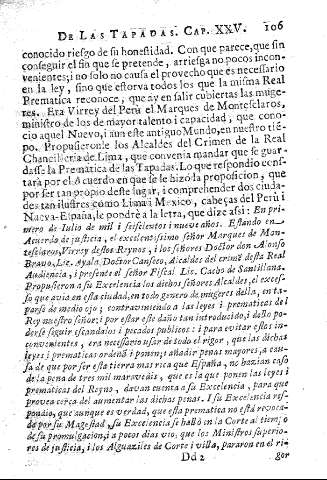 DE LAS TAPADAS. CAP. XXV. 106
conocido riesgo de su honestidad. Con que parece, que sin
conseguir el fin que se pretende, arriesga no pocos incon-
venientes; i no solo no causa el provecho que es necessario
en la ley, sino que estorva todos los que la misma Real
Prematica reconoce, que ay en salir cubiertas las muge-
res. Era Virrey del Perù el Marques de Montesclaros,
ministro de los de mayor talento i capacidad, que cono-
cio aquel Nuevo, i aun este antiguo Mundo, en nuestro tiē-
po. Propusieronle los Alcaldes del Crimen de la Real
Chancilleria de Lima, que convenia mandar que se guar-
dasse la Prematica de las Tapadas. Lo que respondio cons-
tarà por el Acuerdo en que se le hizo la proposicion, que
por ser tan propio deste lugar, i comprehender dos ciuda-
des tan ilustres como Lima i Mexico, cabeças del Perù i
Nueva-España, le pondrè a la letra, que dize assi: En pri-
mero de Iulio de mil i seiscientos i nueve años. Estando en
Acuerdo de justicia, el excelentissimo señor Marques de Mon-
tesclaros, Virrey destos Reynos, i los señores Doctor don Alonso
Bravo, Lic. Ayala, Doctor Canseco, Alcaldes del crimē desta Real
Audiencia, i presente el señor Fiscal Lic. Cacho de Santillana.
Propusieron a su Excelencia los dichos señores Alcaldes, el exces-
so que avia en esta ciudad, en todo genero de mugeres della, en ta-
parse de medio ojo; contraviniendo a las leyes i prematicas del
Rey nuestro señor; i por estar este daño tan introducido, i del po-
derse seguir escandalos i pecados publicos: i para evitar estos in-
convenientes, era necessario usar de todo el rigor, que las dichas
leyes i prematicas ordenā i ponen; i añadir penas mayores, a cau-
sa de que por ser esta tierra mas rica que España, no hazian caso
de la pena de tres mil maravedis, que es la que ponen las leyes i
prematicas del Reyno, davan cuenta a su Excelencia, para que
provea cerca del aumentar las dichas penas. I su Excelencia res-
pondio, que aunque es verdad, que esta prematica no està revoca-
da por su Magestad, su Excelencia se hallò en la Corte al tiempo
de su promulgacion; i a pocos dias vio, que los Ministros superio-
res de justicia, i los Alguaziles de Corte i villa, pararon en el ri-
Dd 2 gor